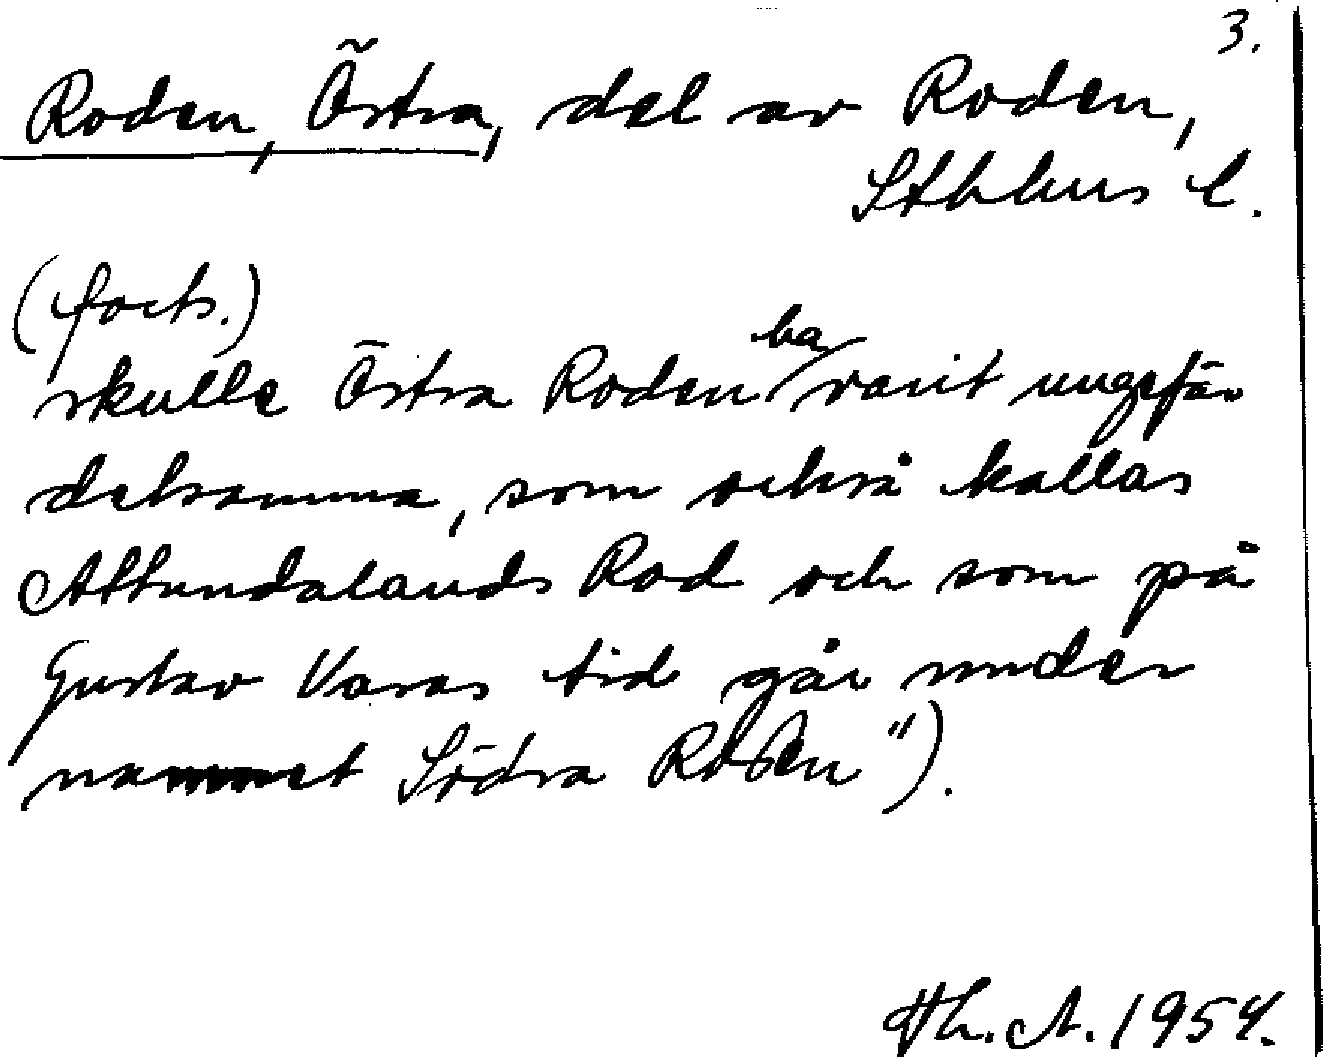 3.
Roden, Östra, del av Roden,
Sthlms l.
(forts.)
skulle Östra Roden ha varit ungefär
detsamma, som också kallas
Attundalands Rod och som på
Gustav Vasas tid går under
namnet Södra Roden").
Th. A. 1954.